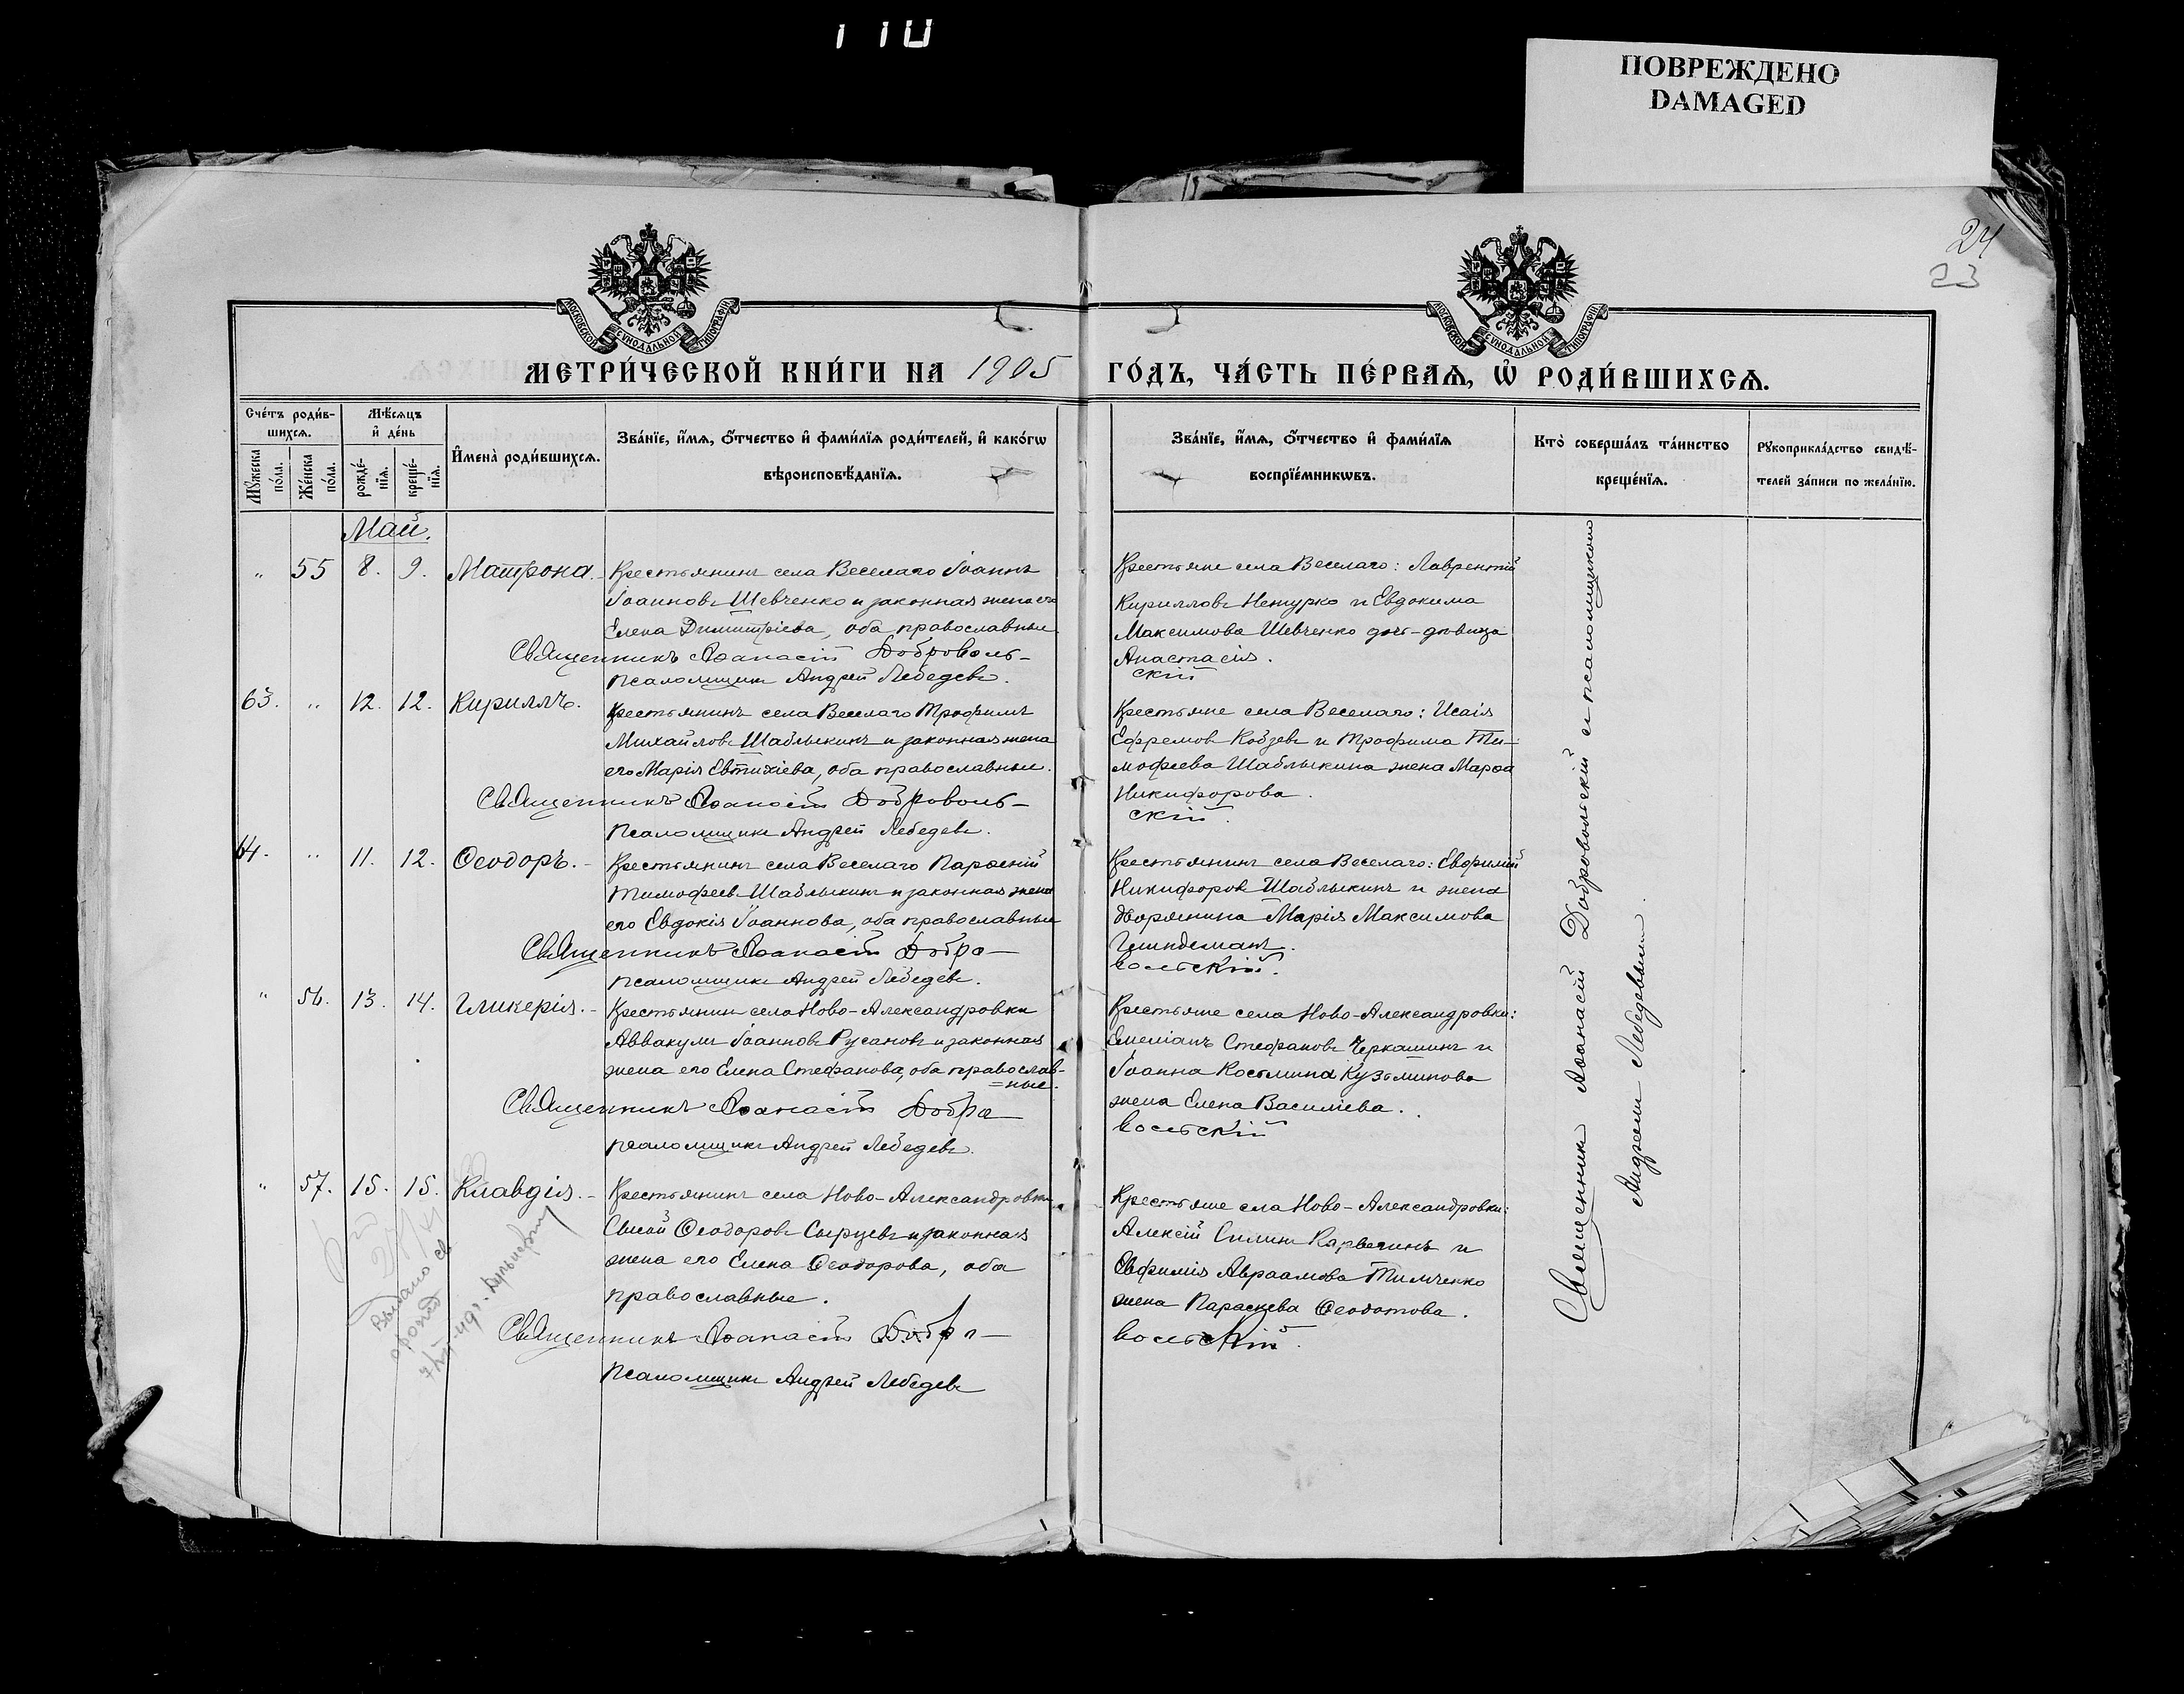 110
ПОВРЕЖДЕНО
DAMAGED
24
23
МОСКОВСКОЙ СѴНОДАЛЬНОЙ ТИПОГРАФІИ
МОСКОВСКОЙ СѴНОДАЛЬНОЙ ТИПОГРАФІИ
МЕТРИ́ЧЕСКОЙ КНИ́ГИ НА 1905 ГО́ДЪ, ЧА́СТЬ ПЕ́РВАѦ, Ѡ҆ РОДИ́ВШИХСѦ.
Сче́тъ роди́в-
шихсѧ.
Мꙋ́жеска по́ла.
Же́нска по́ла.
Мѣ́сѧцъ
и҆ де́нь
рожде́-
нїѧ.
креще́-
нїѧ.
И҆мена̀ роди́вшихсѧ.
Зва́нїе, и҆́мѧ, ѻ҆́тчество и҆ фами́лїѧ роди́телей, и҆ како́гѡ
вѣроисповѣ́данїѧ.
Зва́нїе, и҆́мѧ, ѻ҆́тчество и҆ фами́лїѧ
воспрїе́мникѡвъ.
Кто̀ соверша́лъ та́инство
креще́нїѧ.
Рꙋкоприкла́дство свидѣ́-
телей за́писи по жела́нїю.
Май.
" 55 8. 9. Матрона. - Крестьянинъ села Веселаго Іоаннъ
Іоанновъ Шевченко и законная жена его
Елена Димитріева, оба православные.
Священникъ Аѳанасій Доброволь-
Псаломщикъ Андрей Лебедевъ.
Крестьяне села Веселаго: Лаврентій
Кирилловъ Нетурко и Евдокима
Максимова Шевченко дочь-дѣвица
Анастасія.
скій
63. " 12. 12. Кириллъ. Крестьянинъ села Веселаго Трофимъ
Михайловъ Шаблыкинъ и законная жена
его Марія Евтихіева, оба православные.
Священникъ Аѳанасій Доброволь-
Псаломщикъ Андрей Лебедевъ.
Крестьяне села Веселаго: Исаія
Ефремовъ Кобзевъ и Трофима Ти-
мофеева Шаблыкина жена Марѳа
Никифорова.
скій.
64. " 11. 12. Ѳеодоръ. - Крестьянинъ села Веселаго Парѳеній
Тимофеевъ Шаблыкинъ и законная жена
его Евдокія Іоаннова, оба православные
Священникъ Аѳанасій Добро-
Псаломщикъ Андрей Лебедевъ.
Крестьянинъ села Веселаго: Евфимій
Никифоровъ Шаблыкинъ и жена
дворянина Марія Максимова
вольскій.
" 56. 13. 14. Гликерія. - Крестьянинъ села Ново-Александровки
Аввакумъ Іоанновъ Русановъ и законная
жена его Елена Стефанова, оба православ-
=ные.
Священникъ Аѳанасій Добро-
псаломщикъ Андрей Лебедевъ.
Крестьяне села Ново-Александровки:
Емеліанъ Стефановъ Черкашинъ и
Іоанна Косьмина Кузьминова
жена Елена Василіева.
вольскій
" 57. 15. 15. Клавдія. - Крестьянинъ села Ново-Александровки
Сысой Ѳеодоровъ Сырцевъ и законная
жена его Елена Ѳеодорова, оба
православные.
Священникъ Аѳанасій Добро-
Псаломщикъ Андрей Лебедевъ
Крестьяне села Ново-Александровки:
Алексій Силинъ Карвегинъ и
Евфимія Авраамова Тимченко
жена Параскева Ѳеодотова.
вольскій.
Священникъ Аѳанасій Добровольскій и псаломщикомъ
Андреемъ Лебедевымъ.
Выдано св